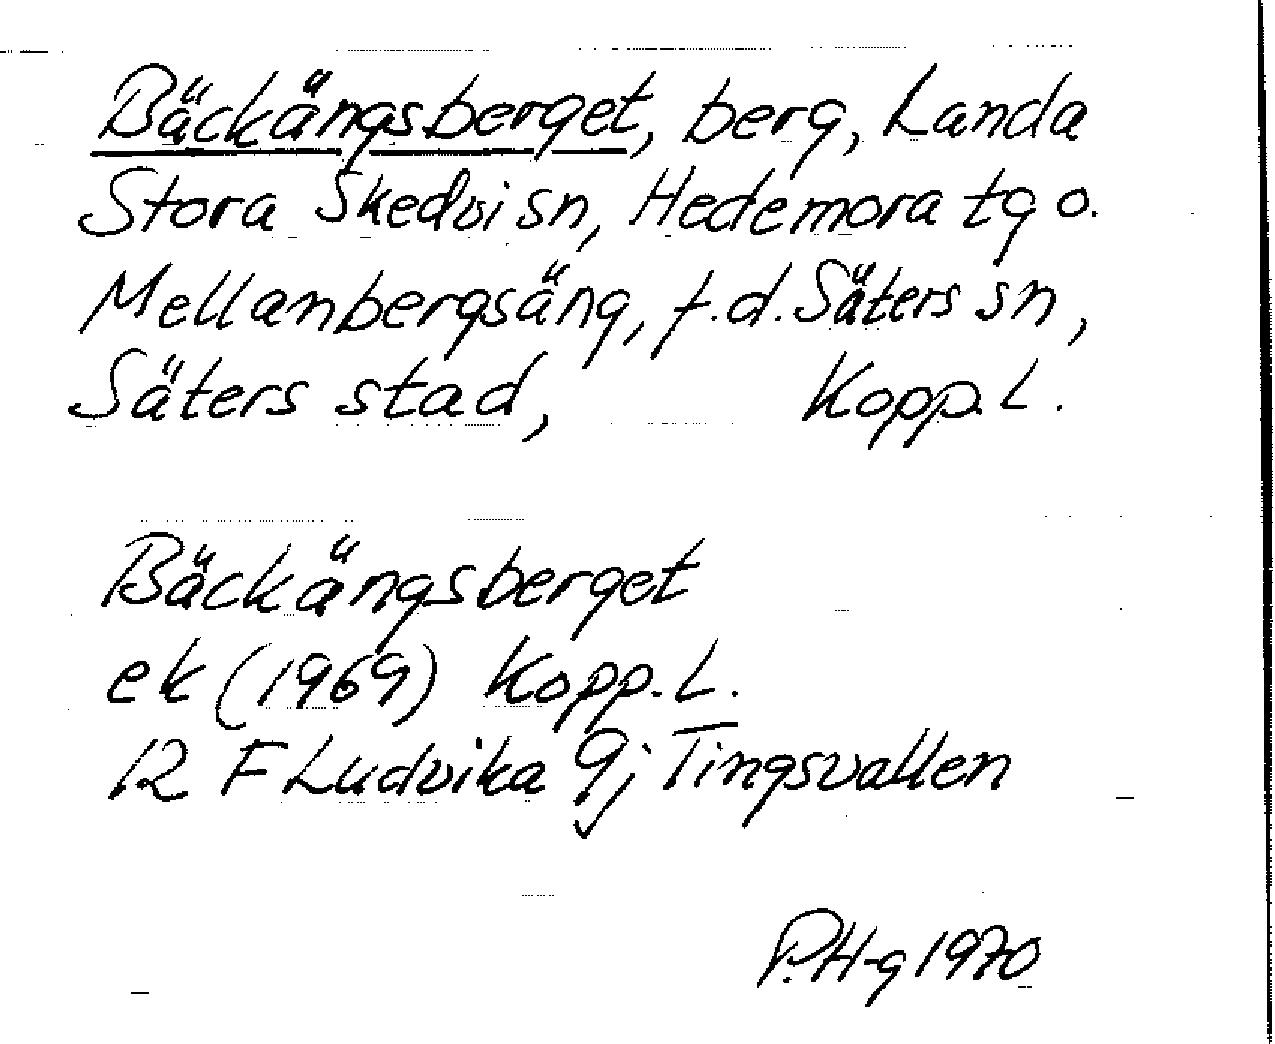 Bäckängsberget, berg, Landa
Stora Skedvi sn, Hedemora tg o.
Mellanbergsäng, f.d. Säters sn,
Säters stad, Kopp. L.
Bäckängsberget
ek (1969) Kopp. L.
12 F Ludvika 9j Tingsvallen
P.H-g 1970